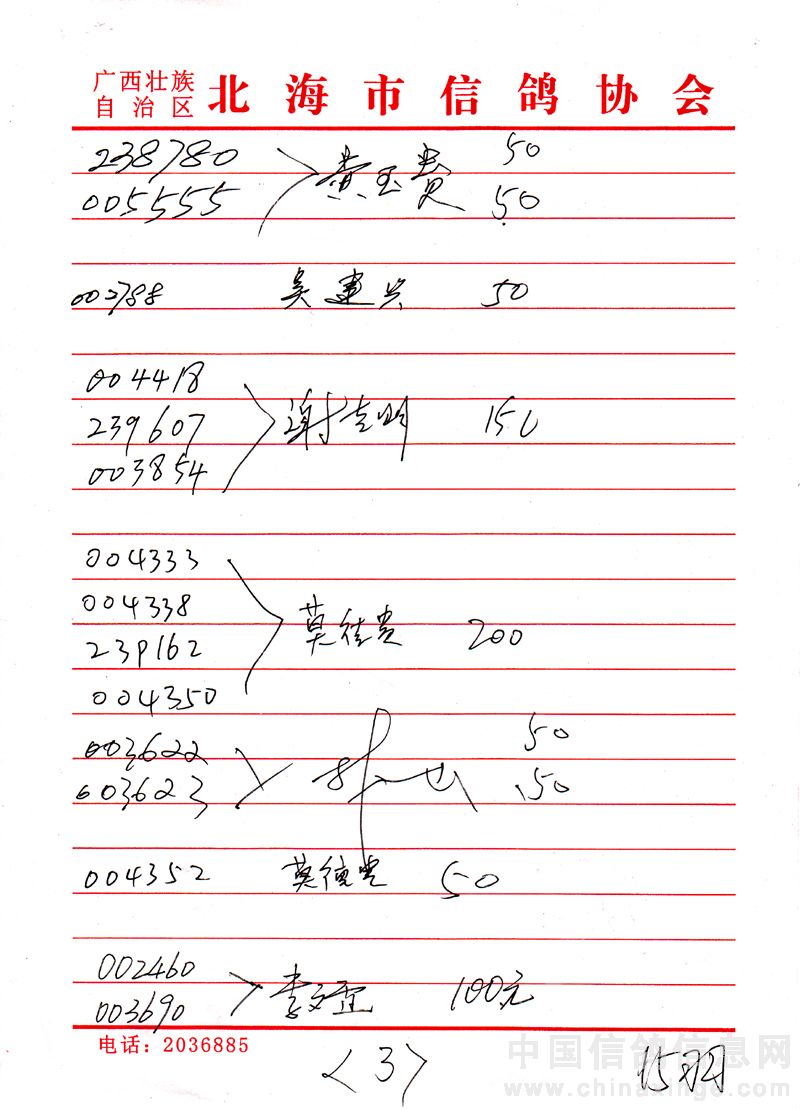 广西壮族
自治区 北海市信鸽协会
238780 50
005555 黄玉贵 50
002788 吴建兴 50
004418
239607 谢 明 150
003854
004333
004338
239162 莫德贵 200
004350
003622 50
003623 50
004352 莫德贵 50
002460
003690 李 100元
电话：2036885
<3> 15羽
中国信鸽信息网
www.chinaxinge.com